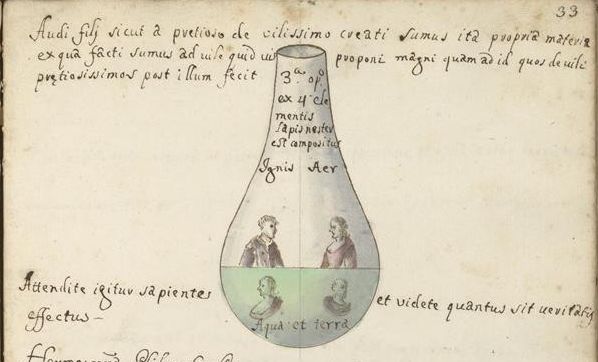 33
Audi filj sicut a pretioso de vilissimo creati sumus ita propria materia
ex qua facti sumus ad vile quid vis proponi magni quam ad id quos de vili
prętiosissimos post illum fecit
3.ª opº
ex 4 ele
mentis
lapis nester
est compositus
Ignis Aer
Attendite igitur sapientes et videte quantus sit veritatis
effectus –
Aqua et terra